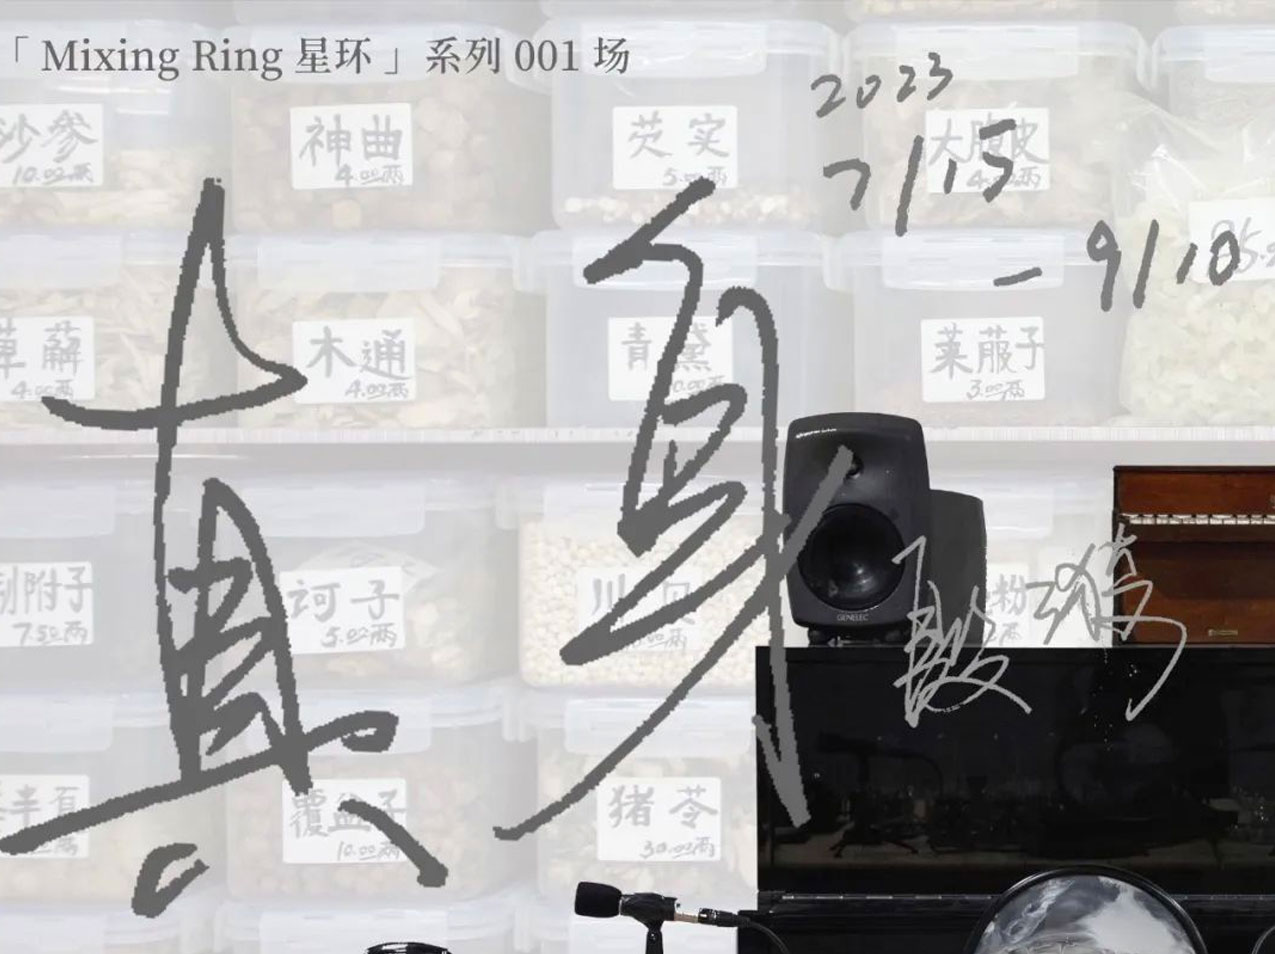 「 Mixing Ring 星环 」系列 001 场
2023
7/15
- 9/10
真身
沙参
10.00两
神曲
4.00两
芡实
5.00两
大腹皮
4.00两
萆薢
4.00两
木通
4.00两
青黛
莱菔子
3.00两
制附子
7.50两
诃子
5.00两
川贝
粉
覆盆子
10.00两
猪苓
30.00两
GENELEC